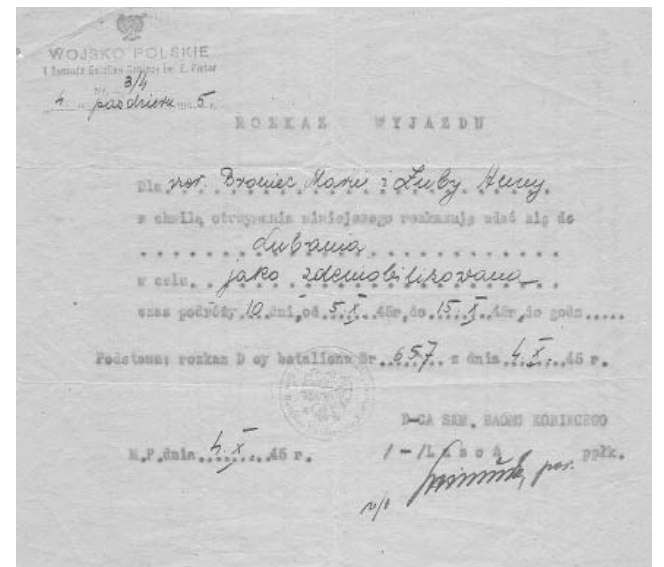 WOJSKO POLSKIE
1 Samodz. Batalion Kobiecy im. E. Plater
Nr. 3/4
4. październ. 5.
ROZKAZ WYJAZDU
Dla szer. Browiec Marii i Zuby Anny
z chwilą otrzymania niniejszego rozkazuję udać się do
Lubania
w celu jako zdemobilizowana
czas podróży 10 dni, od 5.X. 45r, do 15.X. 45r, do godz.....
Podstawa: rozkaz D cy batalionu Nr 657 z dnia 4.X. 45 r.
D-CA SAM. BAONU KOBIECEGO
M.P. dnia 4.X. 45 r. /-/ ppłk.
por.